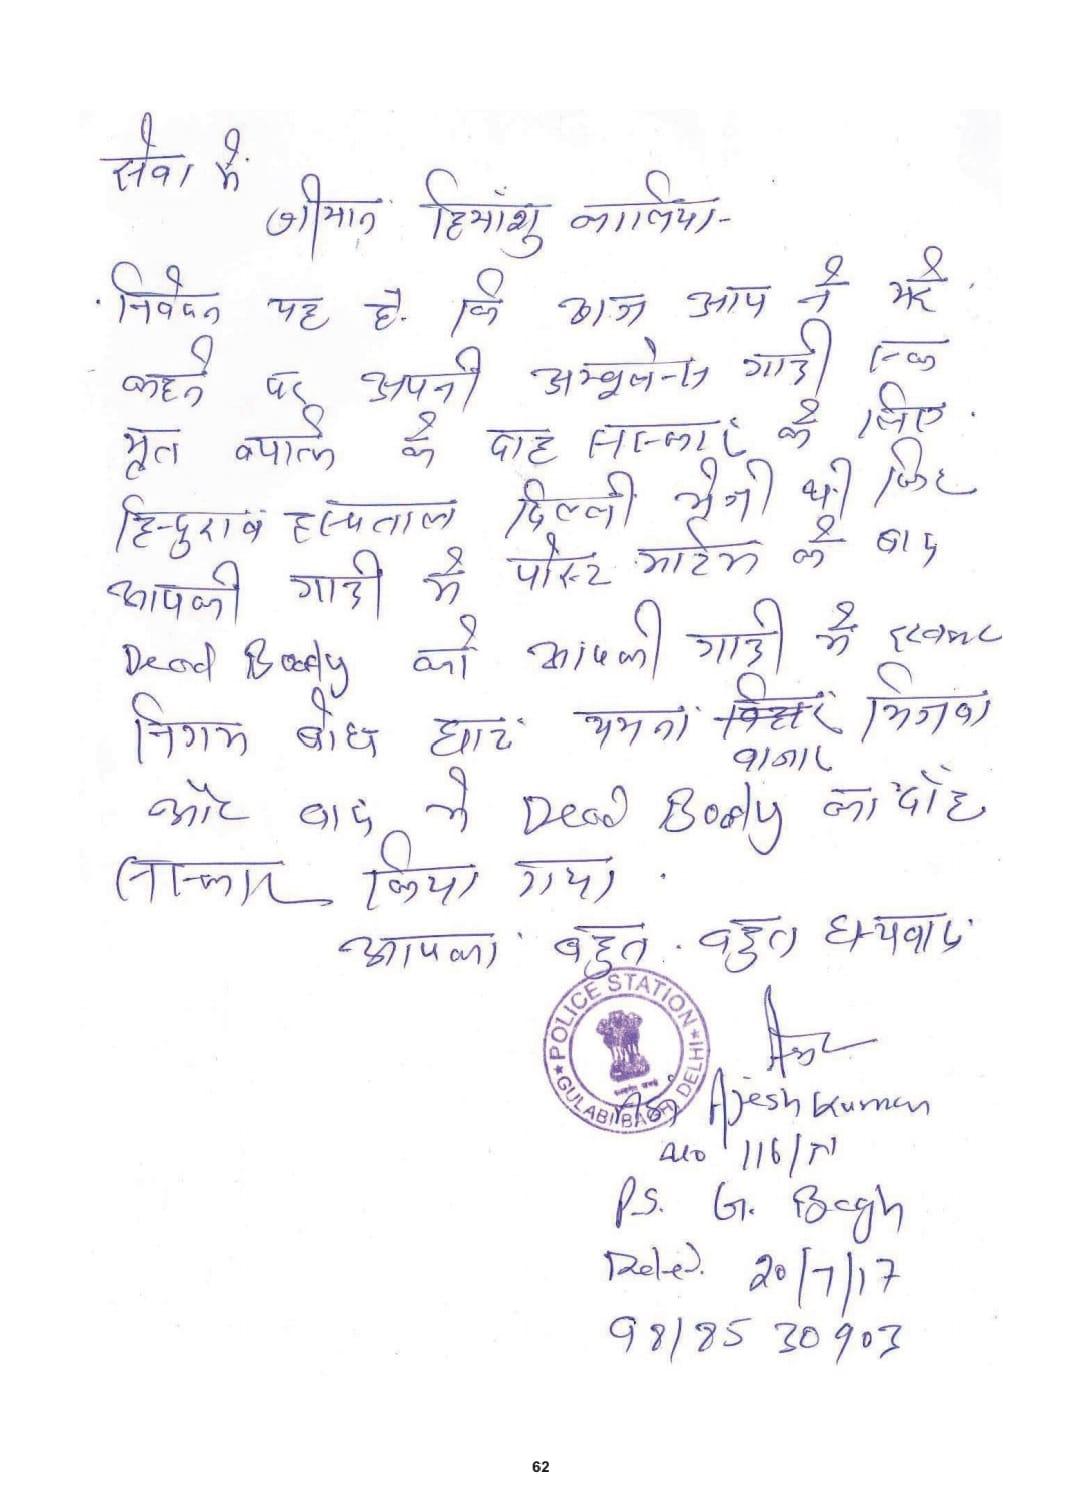 सेवा में
श्रीमान हिमांशु कालिया-
निवेदन यह है. कि आज आप ने मेरे
कहने पर अपनी अम्बूलेन्स गाडी एक
मृत व्यक्ति के दाह सस्कार के लिए
हिन्दुराव हस्पताल दिल्ली भेजी थी फिर
आपकी गाडी मे पोस्ट मार्टम के बाद
Dead Body को आपकी गाडी में रखकर
निगम बोध घाट यमना बाजार भिजवा
और बाद मे Dead Body का दाह
सस्कार किया गया
आपका बहुत. बहुत धन्यवाद
POLICE STATION
GULABI BAGH DELHI
Ajesh Kumar
No 116/N
P.S. G. Bagh
Dated. 20/7/17
98185 30903
62